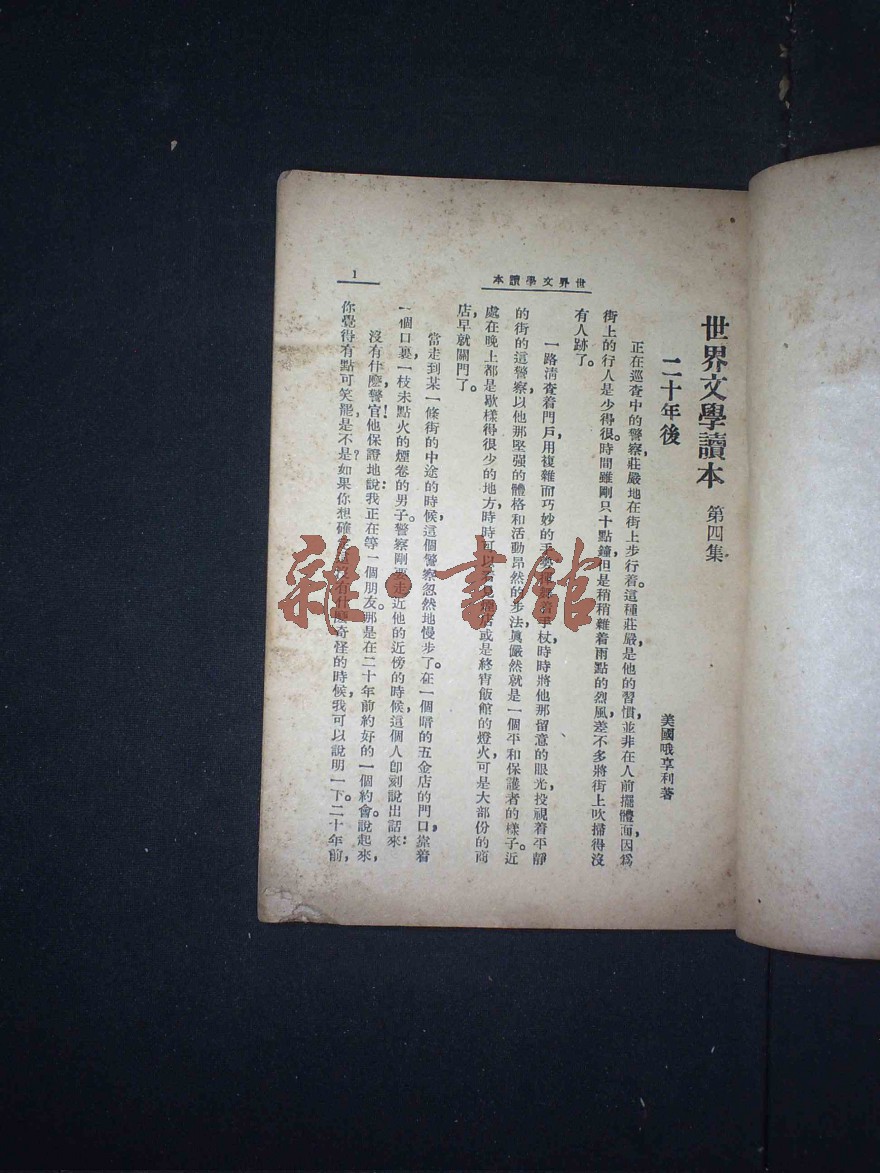 世界文學讀本 第四集
二十年後
美國哦亨利著
正在巡查中的警察，莊嚴地在街上步行着。這種莊嚴是他的習慣，並非在人前擺體面，因爲
街上的行人是少得很。時間雖剛只十點鐘，但是稍稍雜着雨點的烈風，差不多將街上吹掃得沒
有人跡了。
一路清查着門戶，用複雜而巧妙的手 手杖，時時將他那留意的眼光，投視着平靜
的街的這警察，以他那堅强的體格和活動昂然的步法，眞儼然就是一個平和保護者的樣子。近
處在晚上都是歇樣得很少的地方，時時可以看見煙店或是終宵飯館的燈火，可是大部份的商
店早就關門了。
當走到某一條街的中途的時候，這個警察忽然地慢步了。在一個暗的五金店的門口，靠着
一個口裏一枝未點火的煙卷的男子。警察剛要走近他的近傍的時候，這個人卽刻說出話來：
沒有什麽，警官！他保證地說：我正在等一個朋友，那是在二十年前約好的一個約會。說起來，
你覺得有點可笑罷，是不是？如果你想確 沒有什麽奇怪的時候，我可以說明一下。二十年前，
世界文學讀本
1
雜·書館